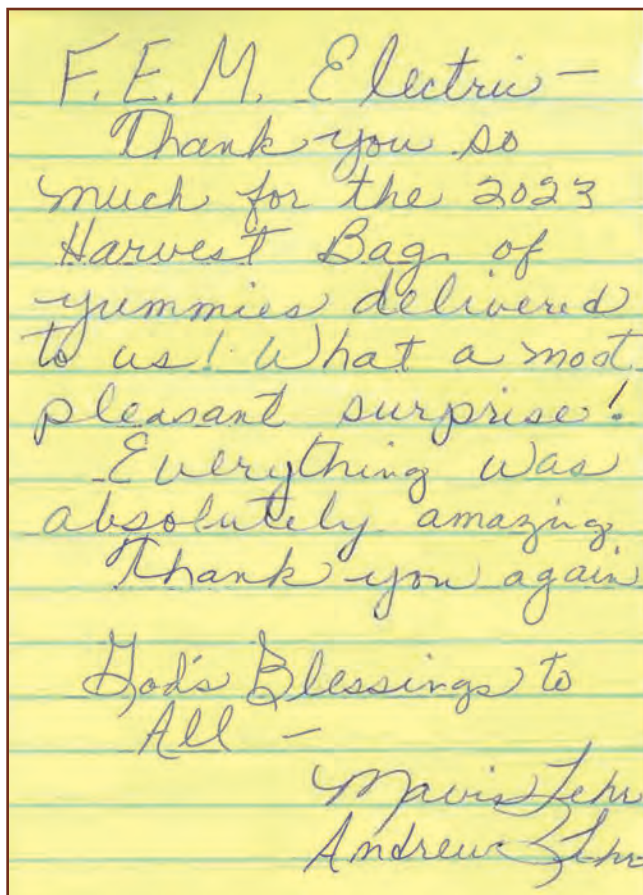 F.E.M. Electric —
Thank you so
much for the 2023
Harvest Bag of
yummies delivered
to us! What a most
pleasant surprise!
Everything was
absolutely amazing
Thank you again
God's Blessings to
All —
Mavis Lehr
Andrew Lehr